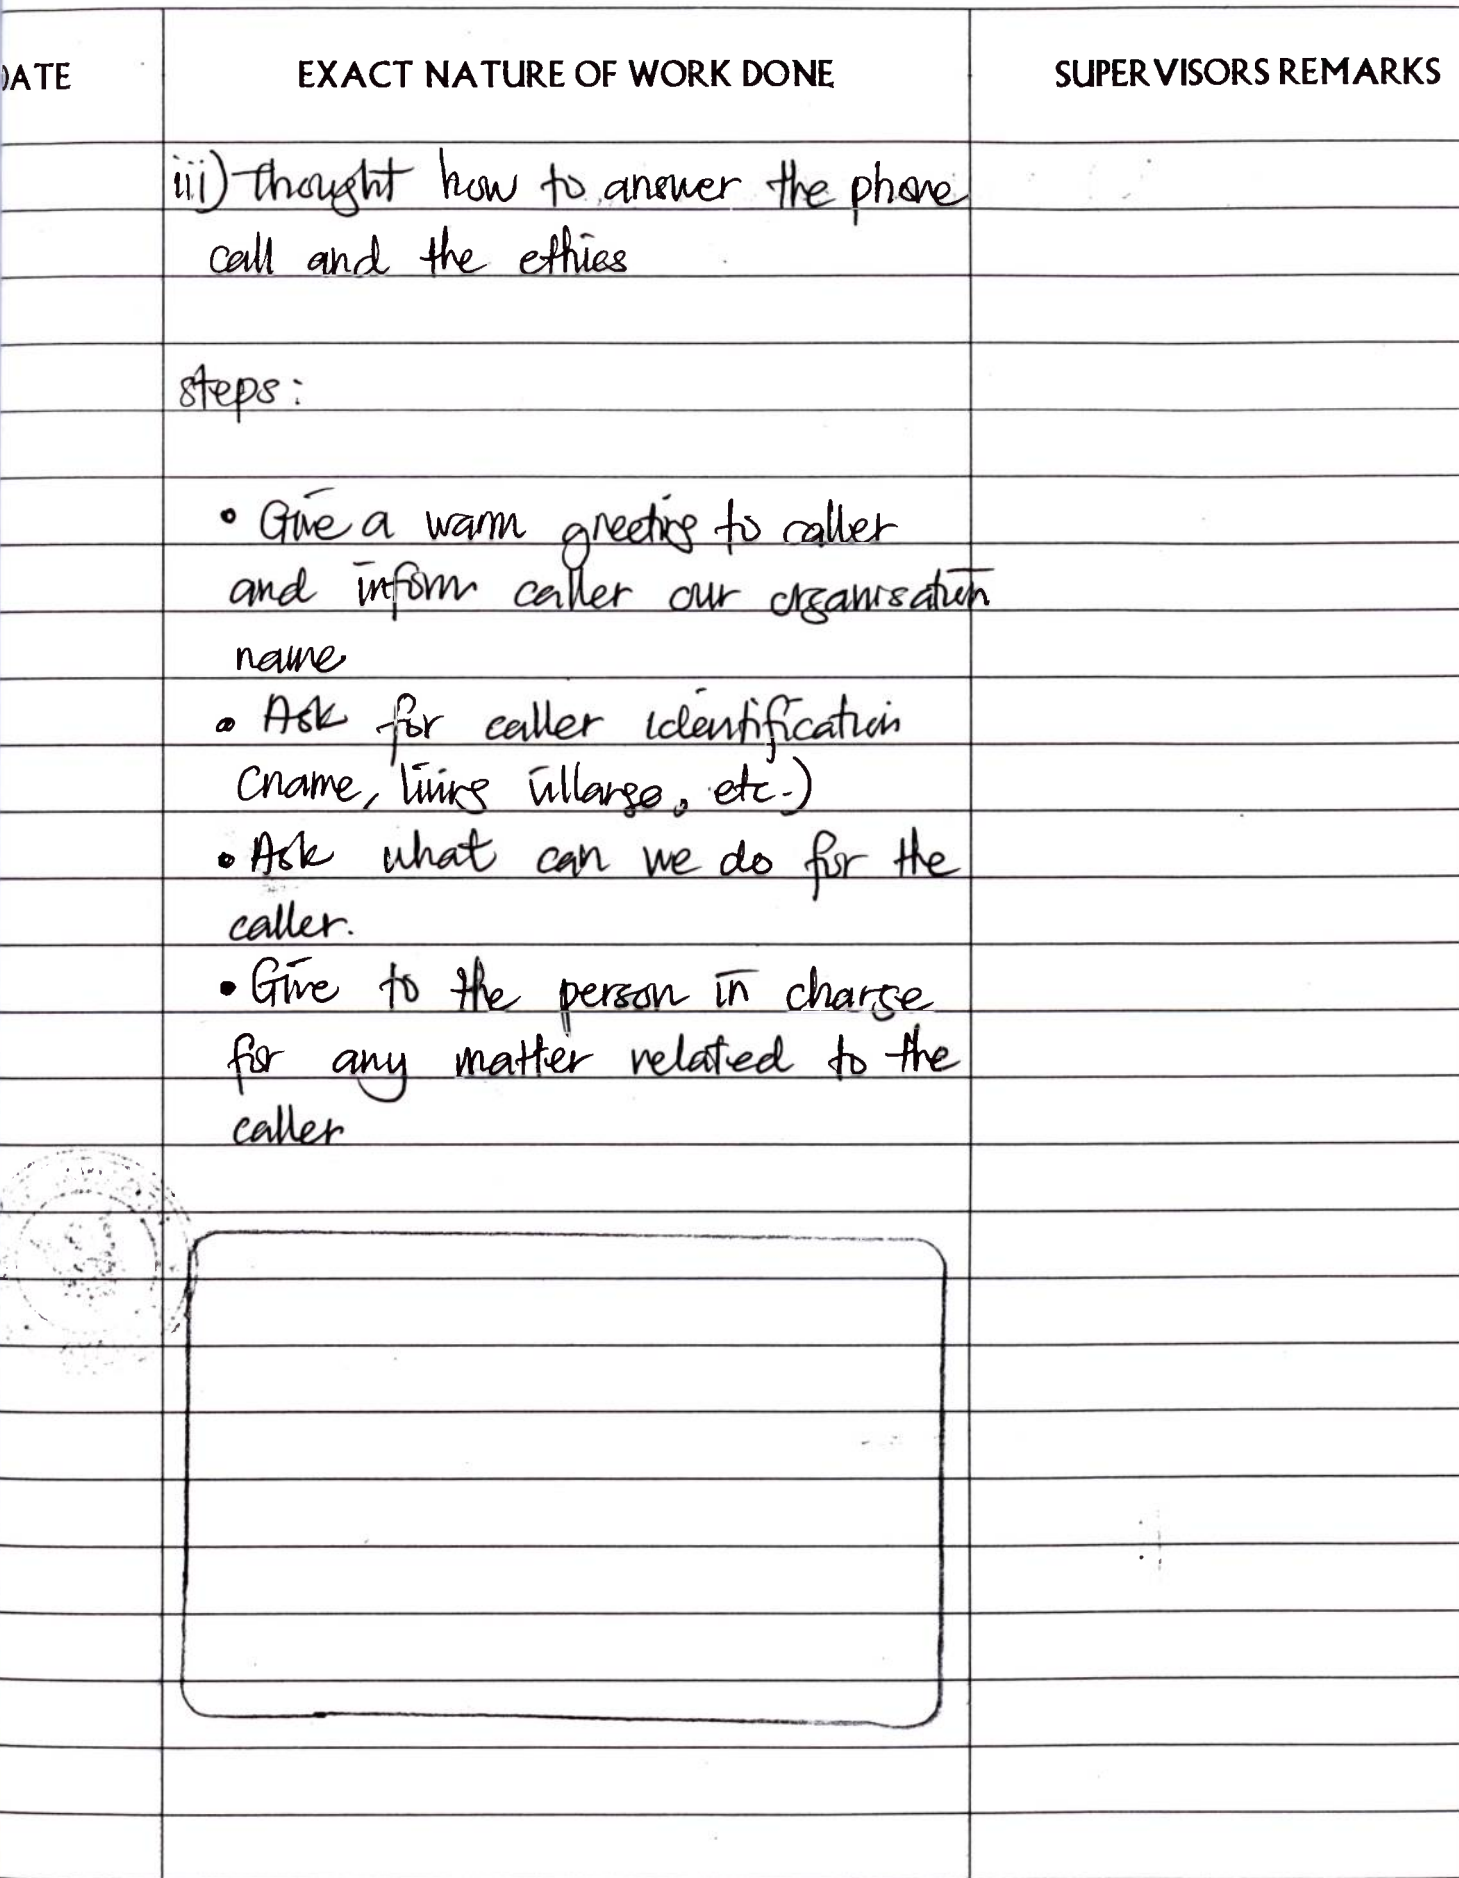 DATE EXACT NATURE OF WORK DONE SUPERVISORS REMARKS
iii) thought how to answer the phone
call and the ethics
steps:
• Give a warm greeting to caller
and inform caller our organisation
name
• Ask for caller identification
(name, living village, etc.)
• Ask what can we do for the
caller.
• Give to the person in charge
for any matter related to the
caller